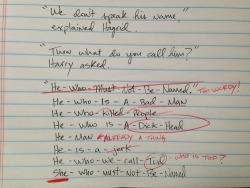 "We don't speak his name,"
explained Hagrid.
"Then what do you call him?"
Harry asked.
"He-Who-Must-Not-Be-Named." TOO WORDY!
He-Who-Is-A-Bad-Man
He-Who-Killed-People
He-Who Is-A-Dick-Head
He-Man ALREADY A THING
He-is-a-jerk
He-who-we-call-Tod - WHO IS TOD?
She-who-must-Not-Be-Named